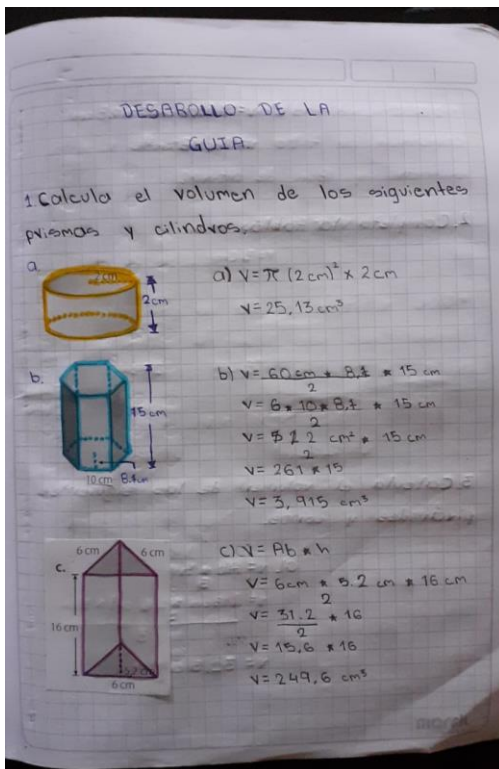 DESABOLLO DE LA
GUIA
1 Calcula el volumen de los siguientes
prismas y cilindros.
a.
2cm
2cm
a) V= π (2cm)² x 2cm
V= 25,13 cm³
b.
15 cm
10 cm
b) V= 60 cm * 8,7 * 15 cm
2
V= 6 * 10 * 8,7 * 15 cm
2
V= 522 cm² * 15 cm
2
V= 261 * 15
V= 3,915 cm³
c.
6 cm
6 cm
16 cm
5.2 cm
6 cm
c) V= Ab * h
V= 6cm * 5.2 cm * 16 cm
2
V= 31.2 * 16
2
V= 15,6 * 16
V= 249,6 cm³